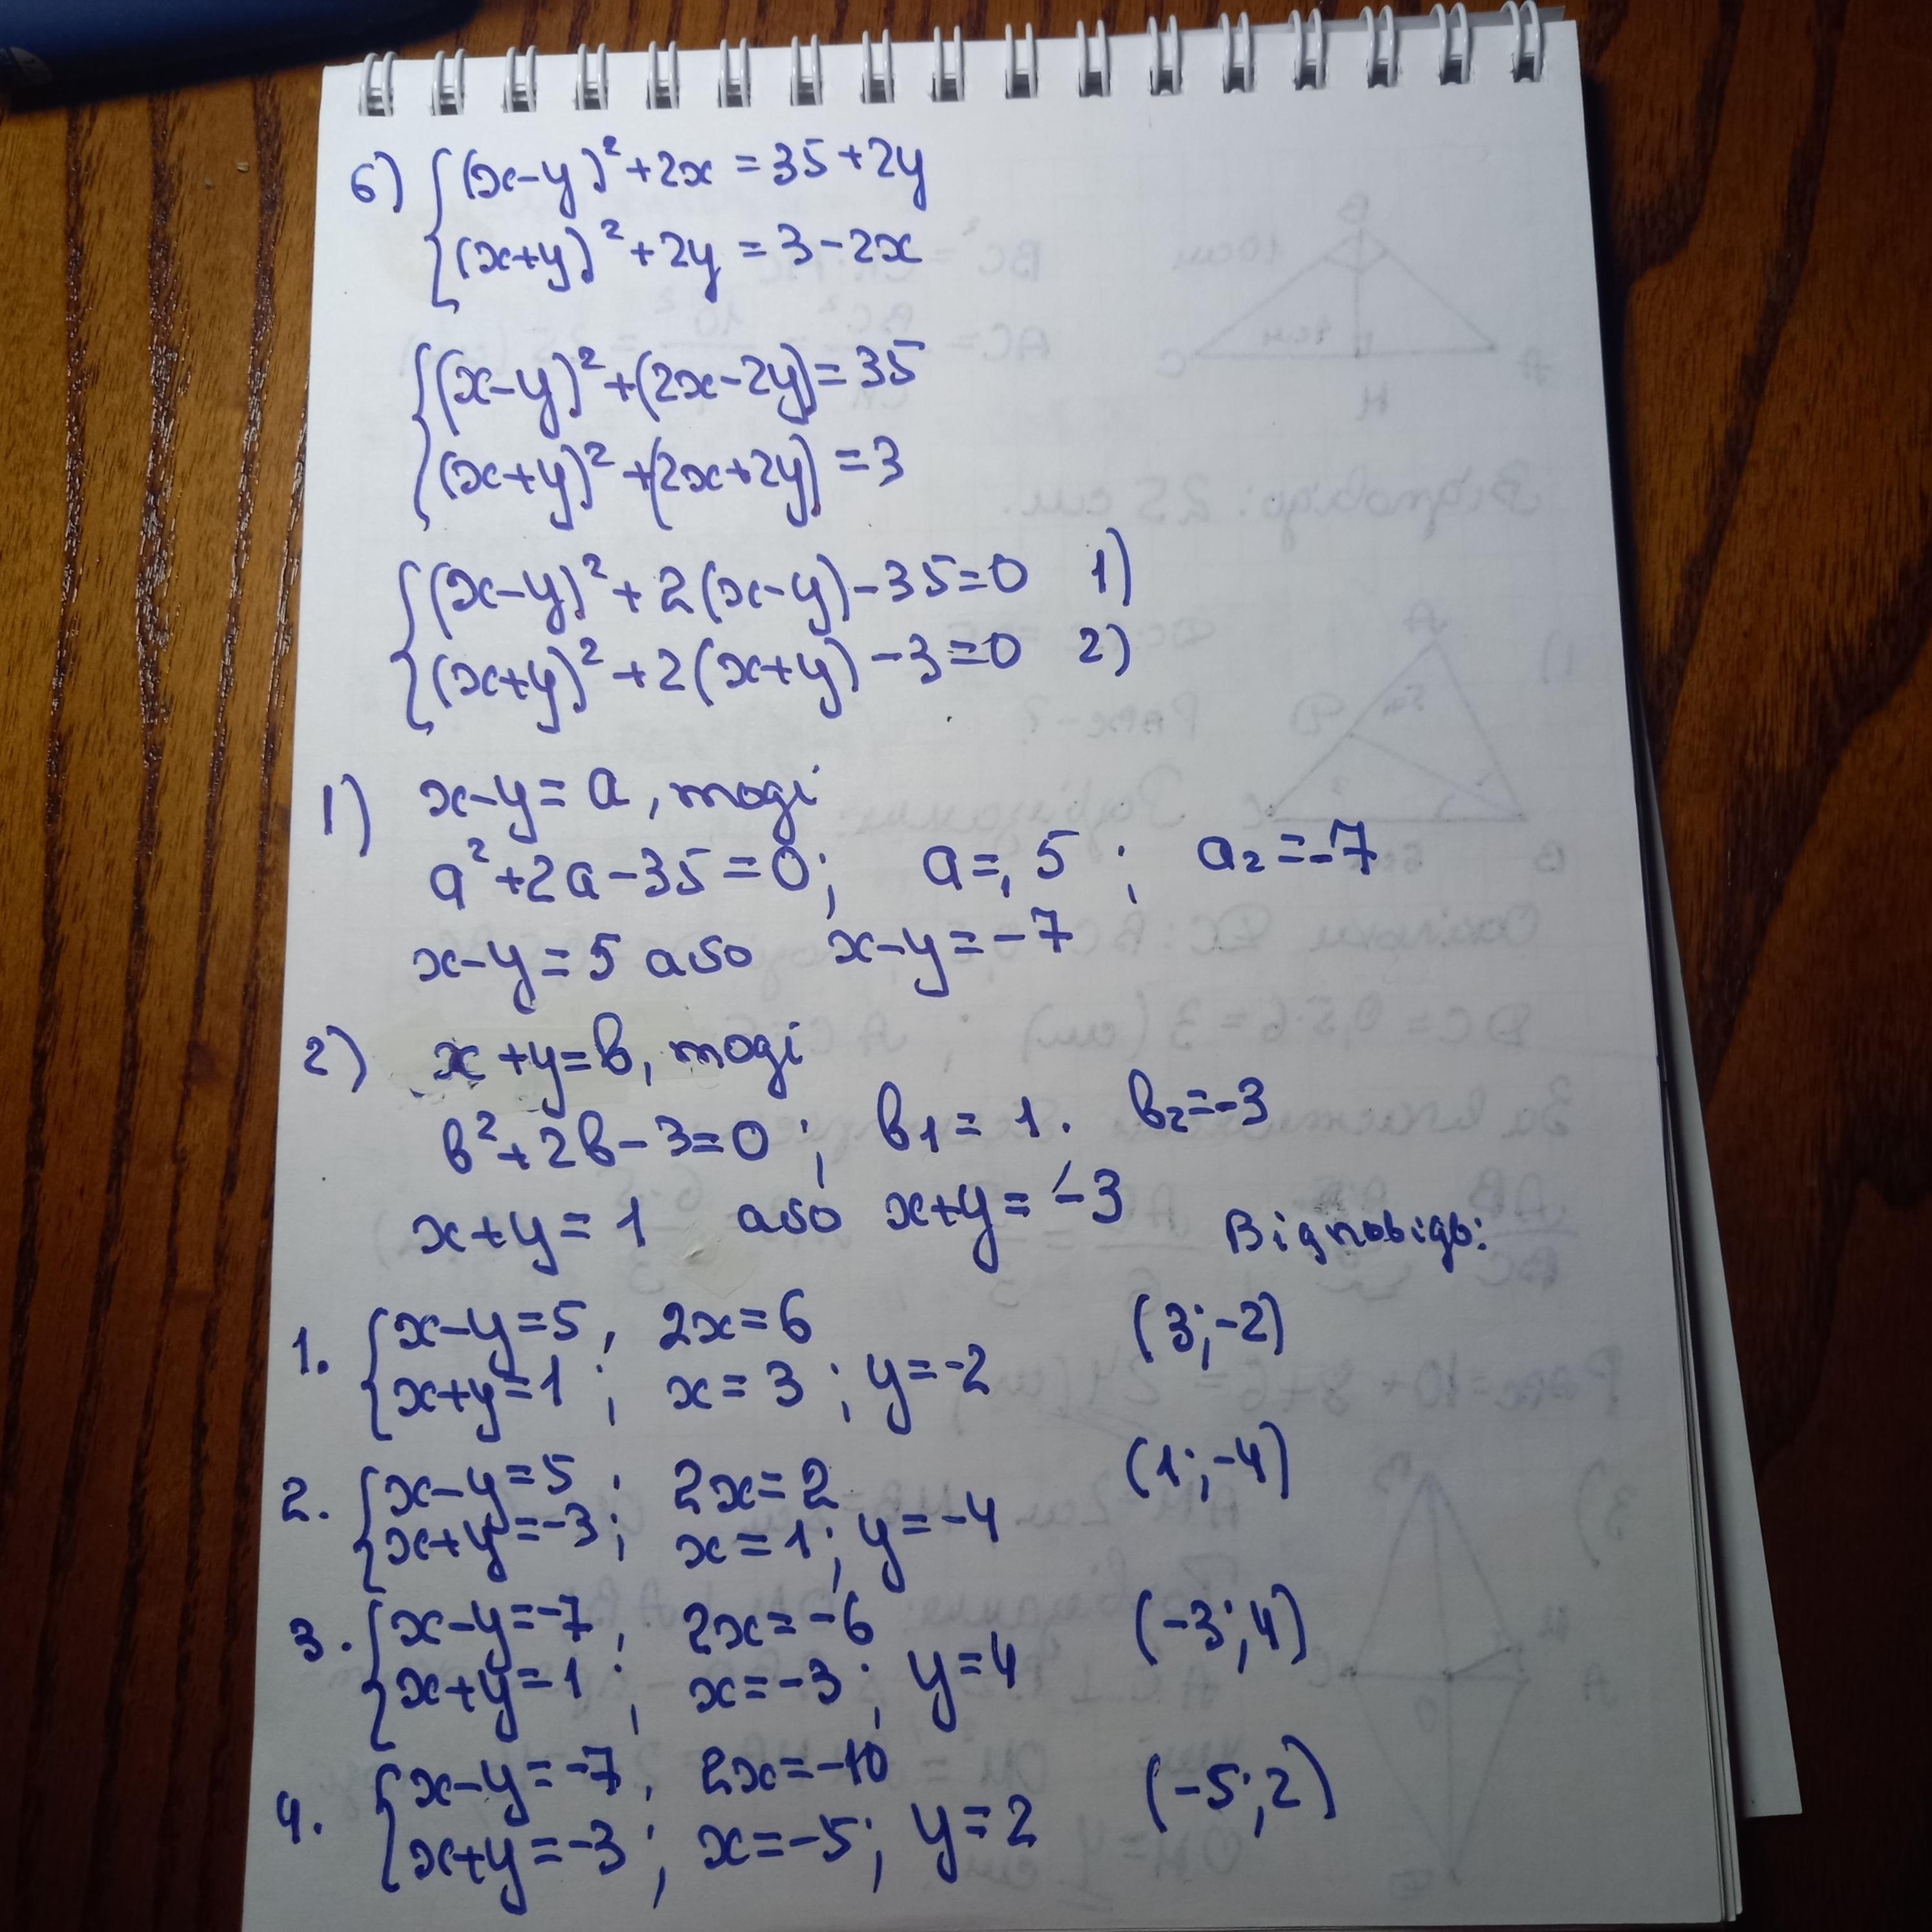 6) { (x-y)² + 2x = 35 + 2y
(x+y)² + 2y = 3 - 2x
{ (x-y)² + (2x-2y) = 35
(x+y)² + (2x+2y) = 3
{ (x-y)² + 2(x-y) - 35 = 0 1)
(x+y)² + 2(x+y) - 3 = 0 2)
1) x-y = a, тоді
a² + 2a - 35 = 0; a₁ = 5; a₂ = -7
x-y = 5 або x-y = -7
2) x+y = b, тоді
b² + 2b - 3 = 0; b₁ = 1. b₂ = -3
x+y = 1 або x+y = -3 Відповідь:
1. { x-y=5, 2x=6 (3;-2)
x+y=1; x=3; y=-2
2. { x-y=5; 2x=2 (1;-4)
x+y=-3; x=1; y=-4
3. { x-y=-7, 2x=-6 (-3;4)
x+y=1; x=-3; y=4
4. { x-y=-7, 2x=-10 (-5;2)
x+y=-3; x=-5; y=2